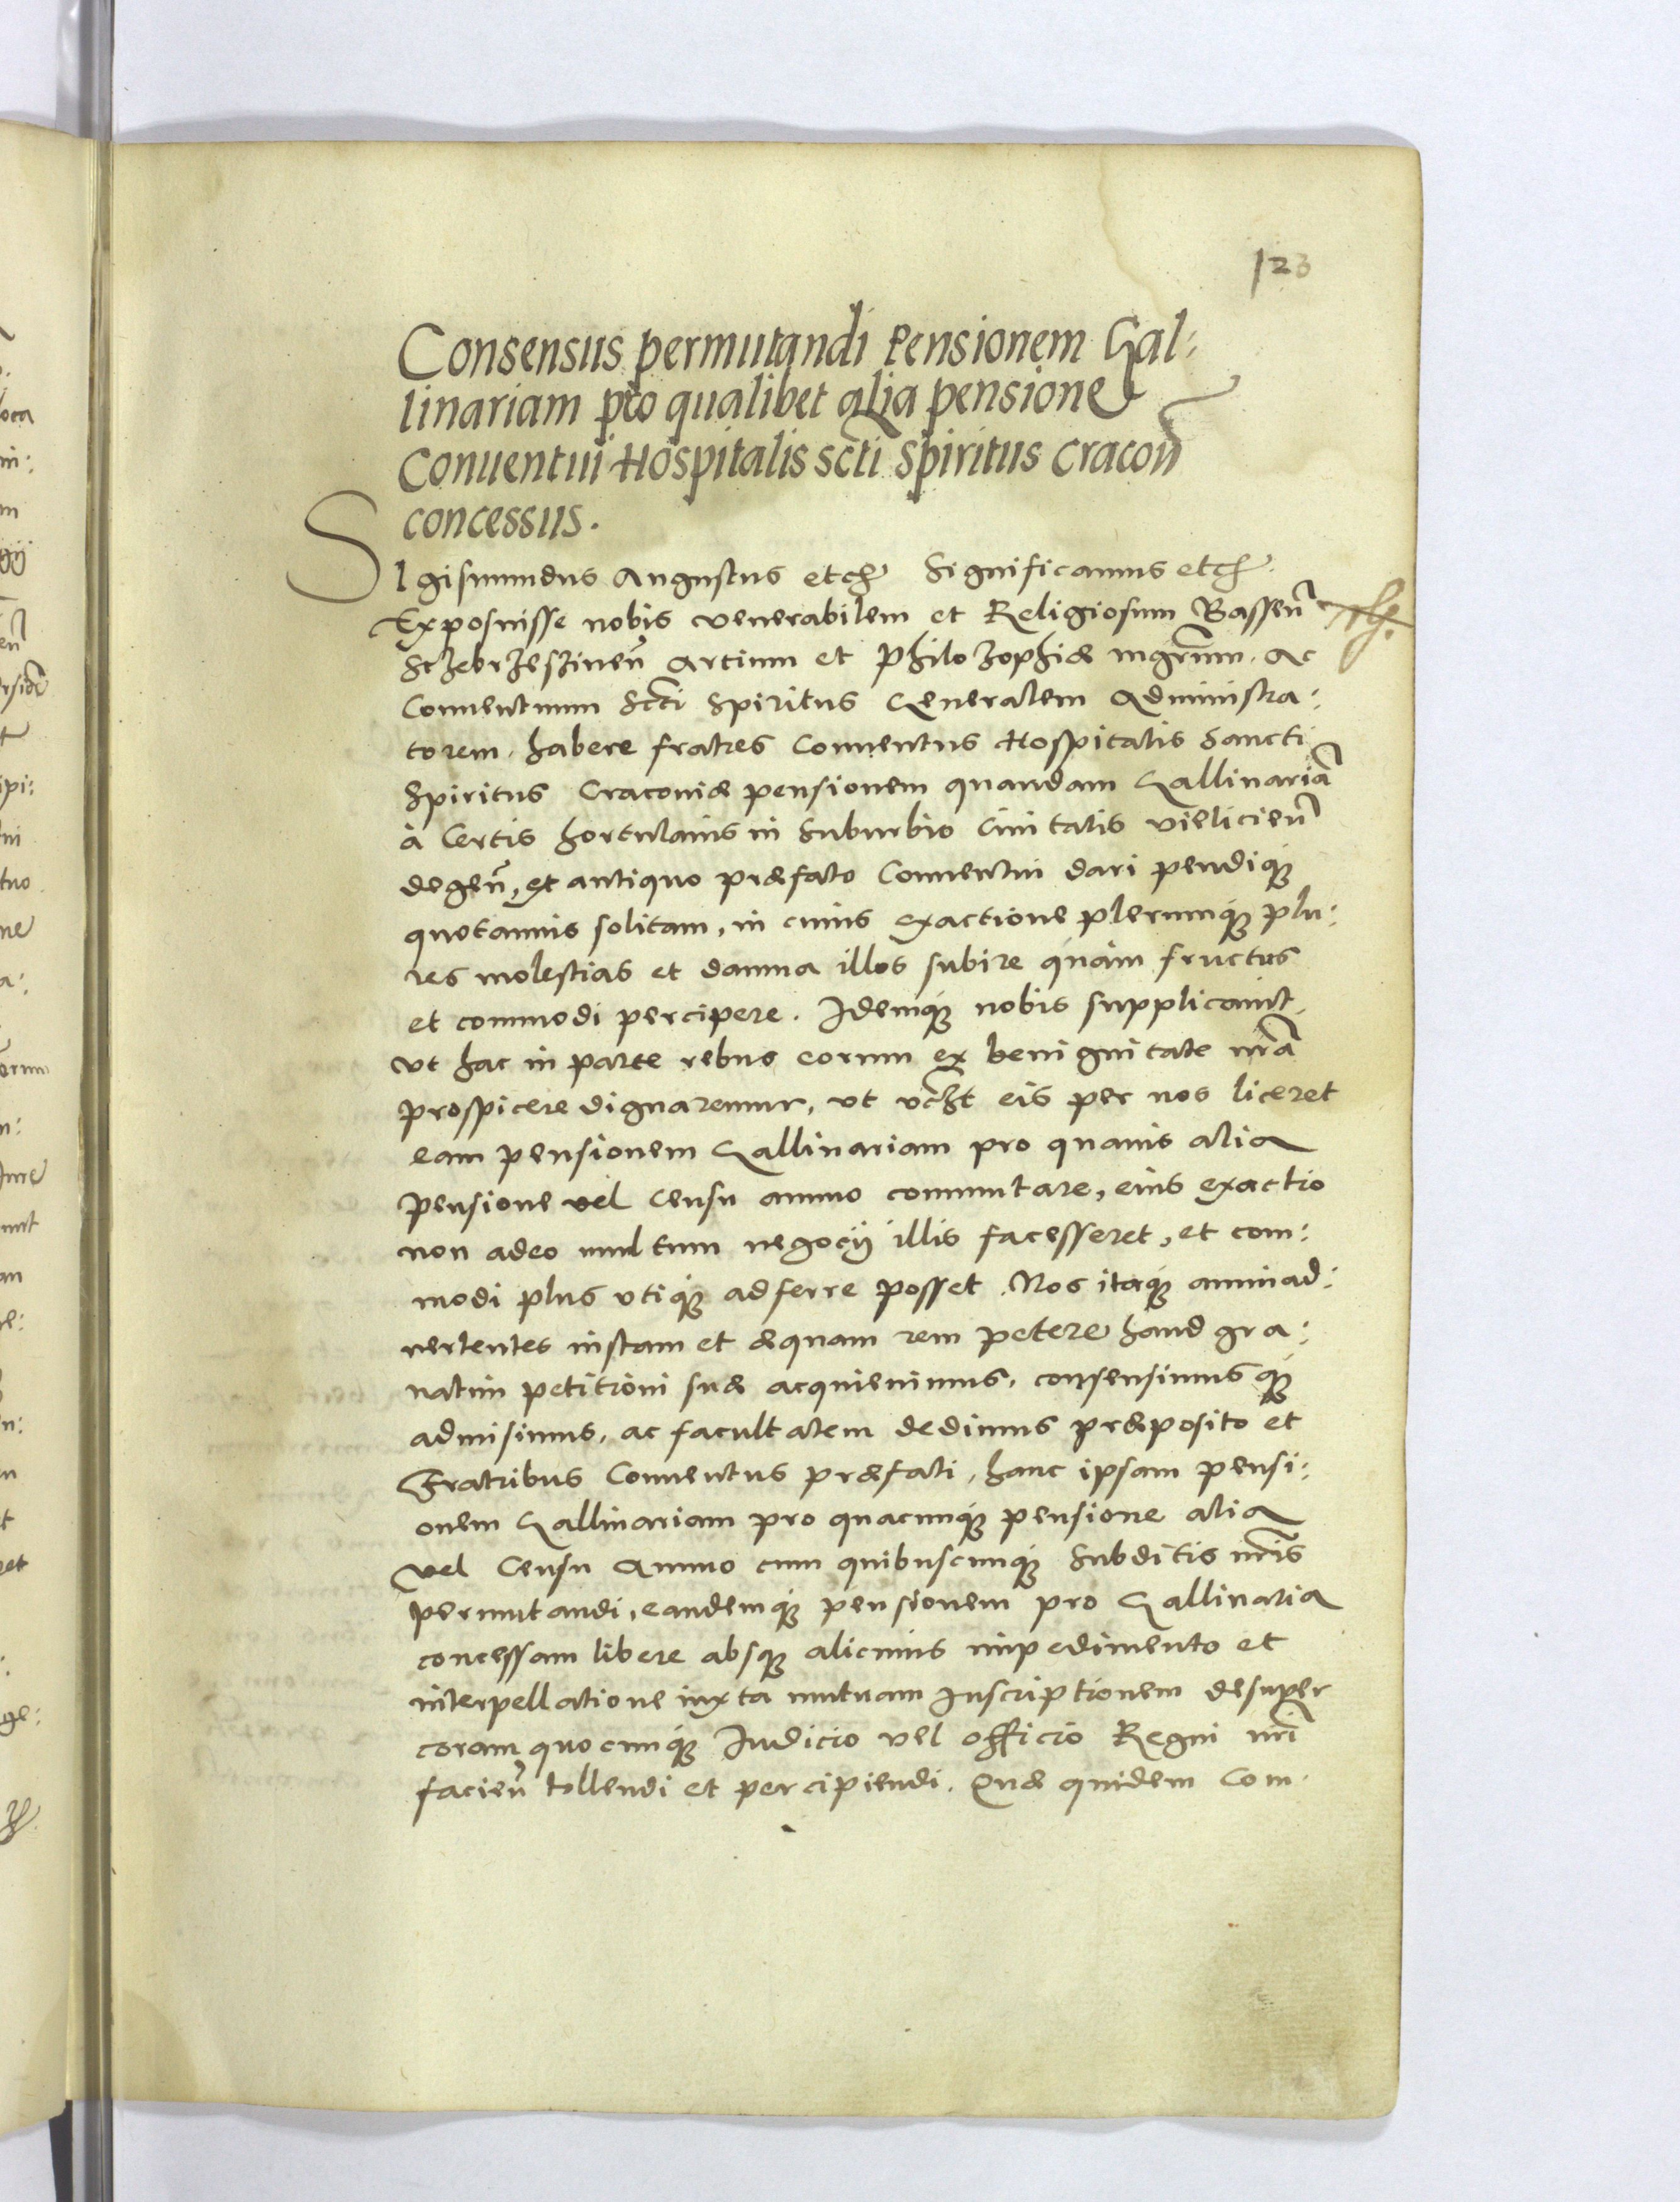 123
Consensus permutandi Pensionem Gal:
linariam pro qualibet alia pensione
Conuentui Hospitalis scti Spiritus Cracoñ
concessus.
SIgismundus Augustus etc̃ Significamus etc̃.
Exposuisse nobis venerabilem et Religiosum
Sczebrzeszineñ Artium et Philozophiæ mgrum. Ac
Conuentuum Scti Spiritus Generalem Administra:
torem. habere fratres Conuentus Hospitalis Sancti
Spiritus Cracouiæ pensionem quandam Gallinariã
à Certis hortulanis in Suburbio Ciuitatis vielicieñ
degeñ, ex antiquo præfato Conuentui dari pendiq́ꝫ
quotannis solitam, in cuius exactione plerumq́ꝫ plu:
res molestias et damna illos subire quàm fructus
et commodi percipere. Idemq́ꝫ nobis supplicauit,
vt hac in parte rebus eorum ex benignitate nrã
prospicere dignaremur, vt vꝫt eis per nos liceret
eam pensionem Gallinariam pro quauis alia
pensione vel Censu annuo commutare, cuius exactio
non adeo multum negocij illis facesseret, et com:
modi plus vtiq́ꝫ adferre posset. Nos itaq́ꝫ animad:
uertentes iustam et æquam rem petere haud gra:
uatim petitioni suæ acquieuimus, consensimusq́ꝫ
admisimus, ac facultatem dedimus præposito et
Fratribus Conuentus præfati, hanc ipsam pensi:
onem Gallinariam pro quacunq́ꝫ pensione alia
vel Censu Annuo cum quibuscunq́ꝫ Subditis nris
permutandi, eandemq́ꝫ pensionem pro Gallinaria
concessam libere absqꝫ alicuius impedimento et
interpellatione iuxta mutuam Inscriptionem desuper
coram quocunq́ꝫ Iudicio vel officio Regni nri
facieñ tollendi et percipiendi. Quæ quidem Com